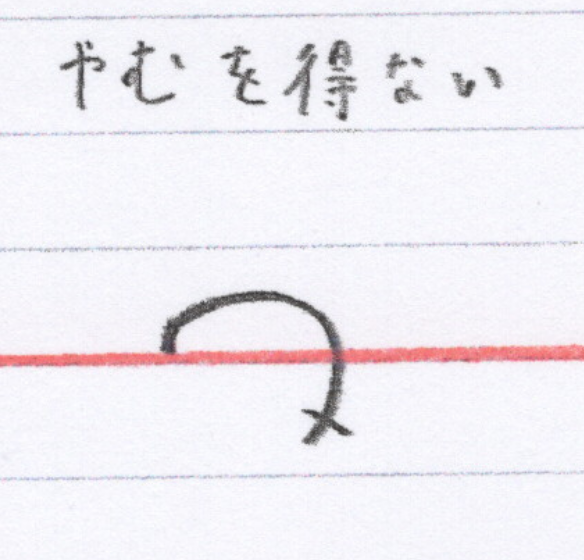 やむを得ない